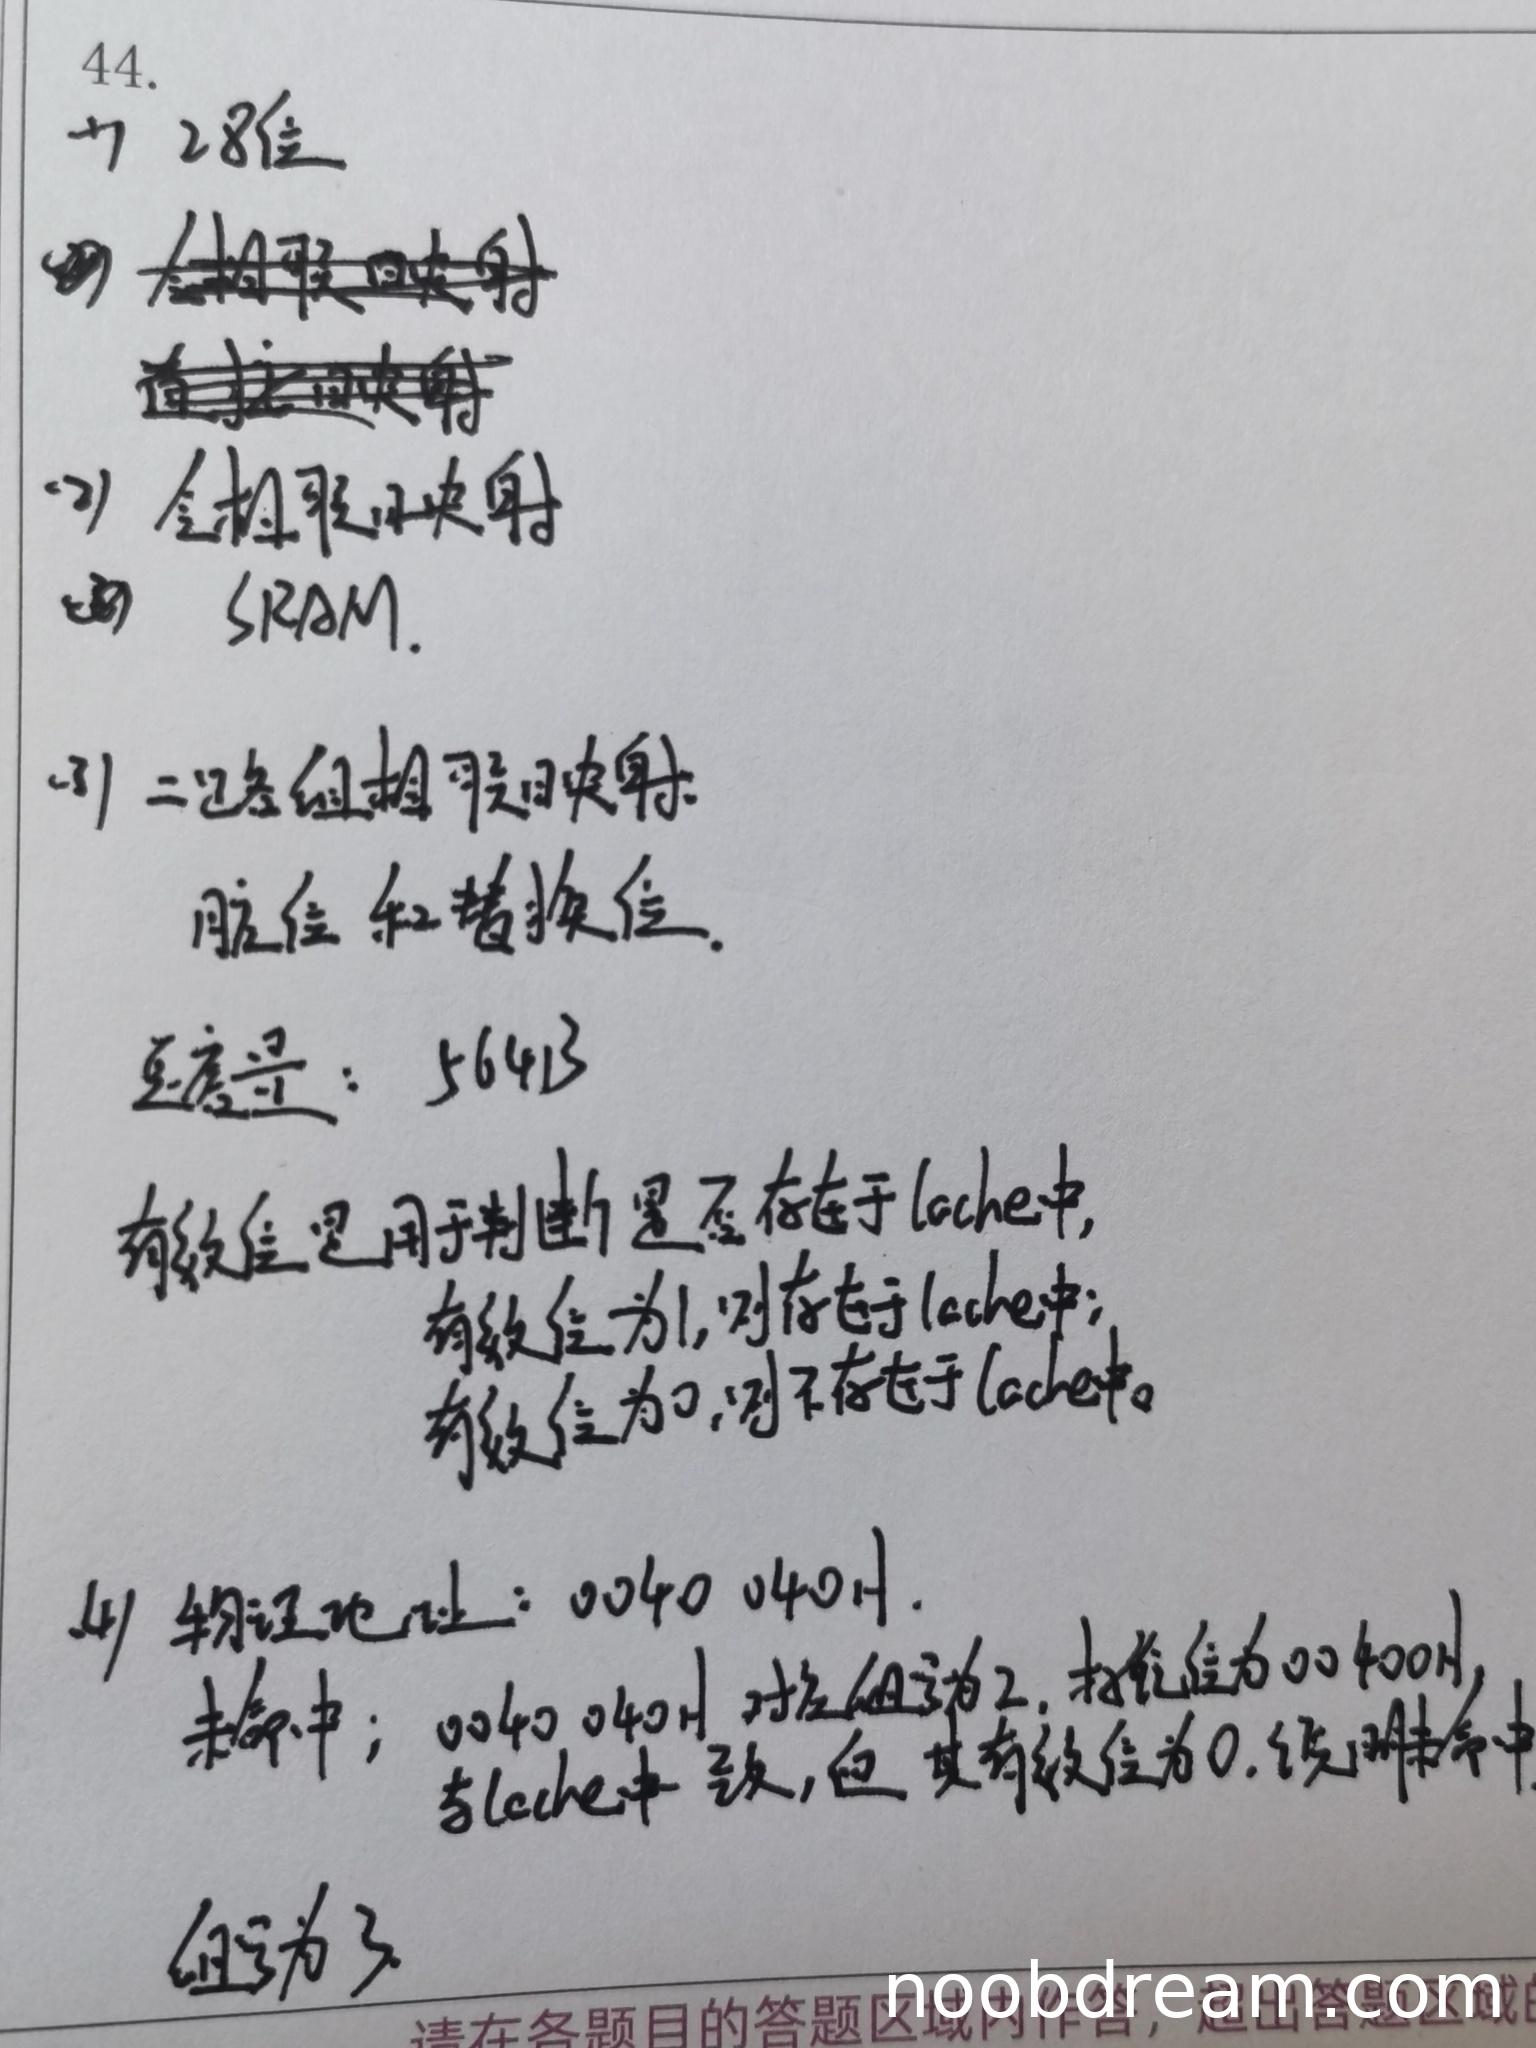 44.
(1) 28位
全相联映射
直接映射
(2) 全相联映射
SRAM.
(3) 二路组相联映射.
脏位和替换位.
总容量: 564B
有效位是用于判断是否存在于Cache中,
有效位为1,则存在于Cache中;
有效位为0,则不存在于Cache中。
(4) 物理地址: 0040 040H.
未命中; 0040 040H 对应组号为2. 标记位为00400H,
与Cache中一致,但其有效位为0.
组号为3.
noobdream.com
请在各题目的答题区域内作答,超出答题区域的